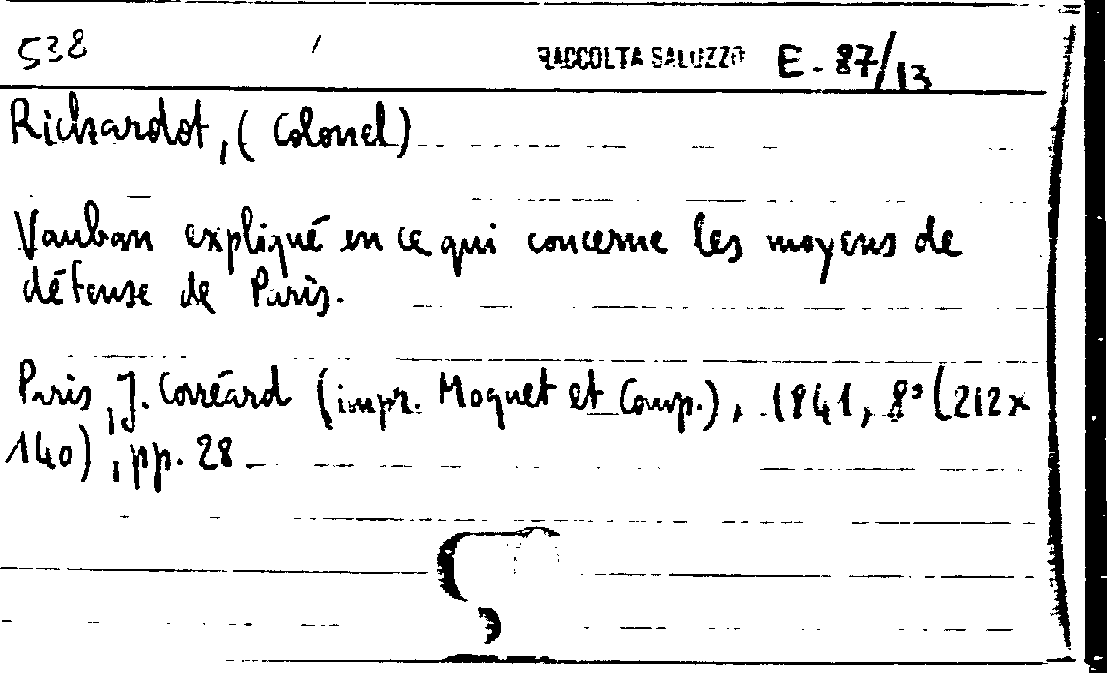 538 / RACCOLTA SALUZZO E. 87/13
Richardot, (Colonel)
Vauban expliqué en ce qui concerne les moyens de
défense de Paris.
Paris, J. Corréard (impr. Moquet et Comp.), 1841, 8° (212x
140), pp. 28